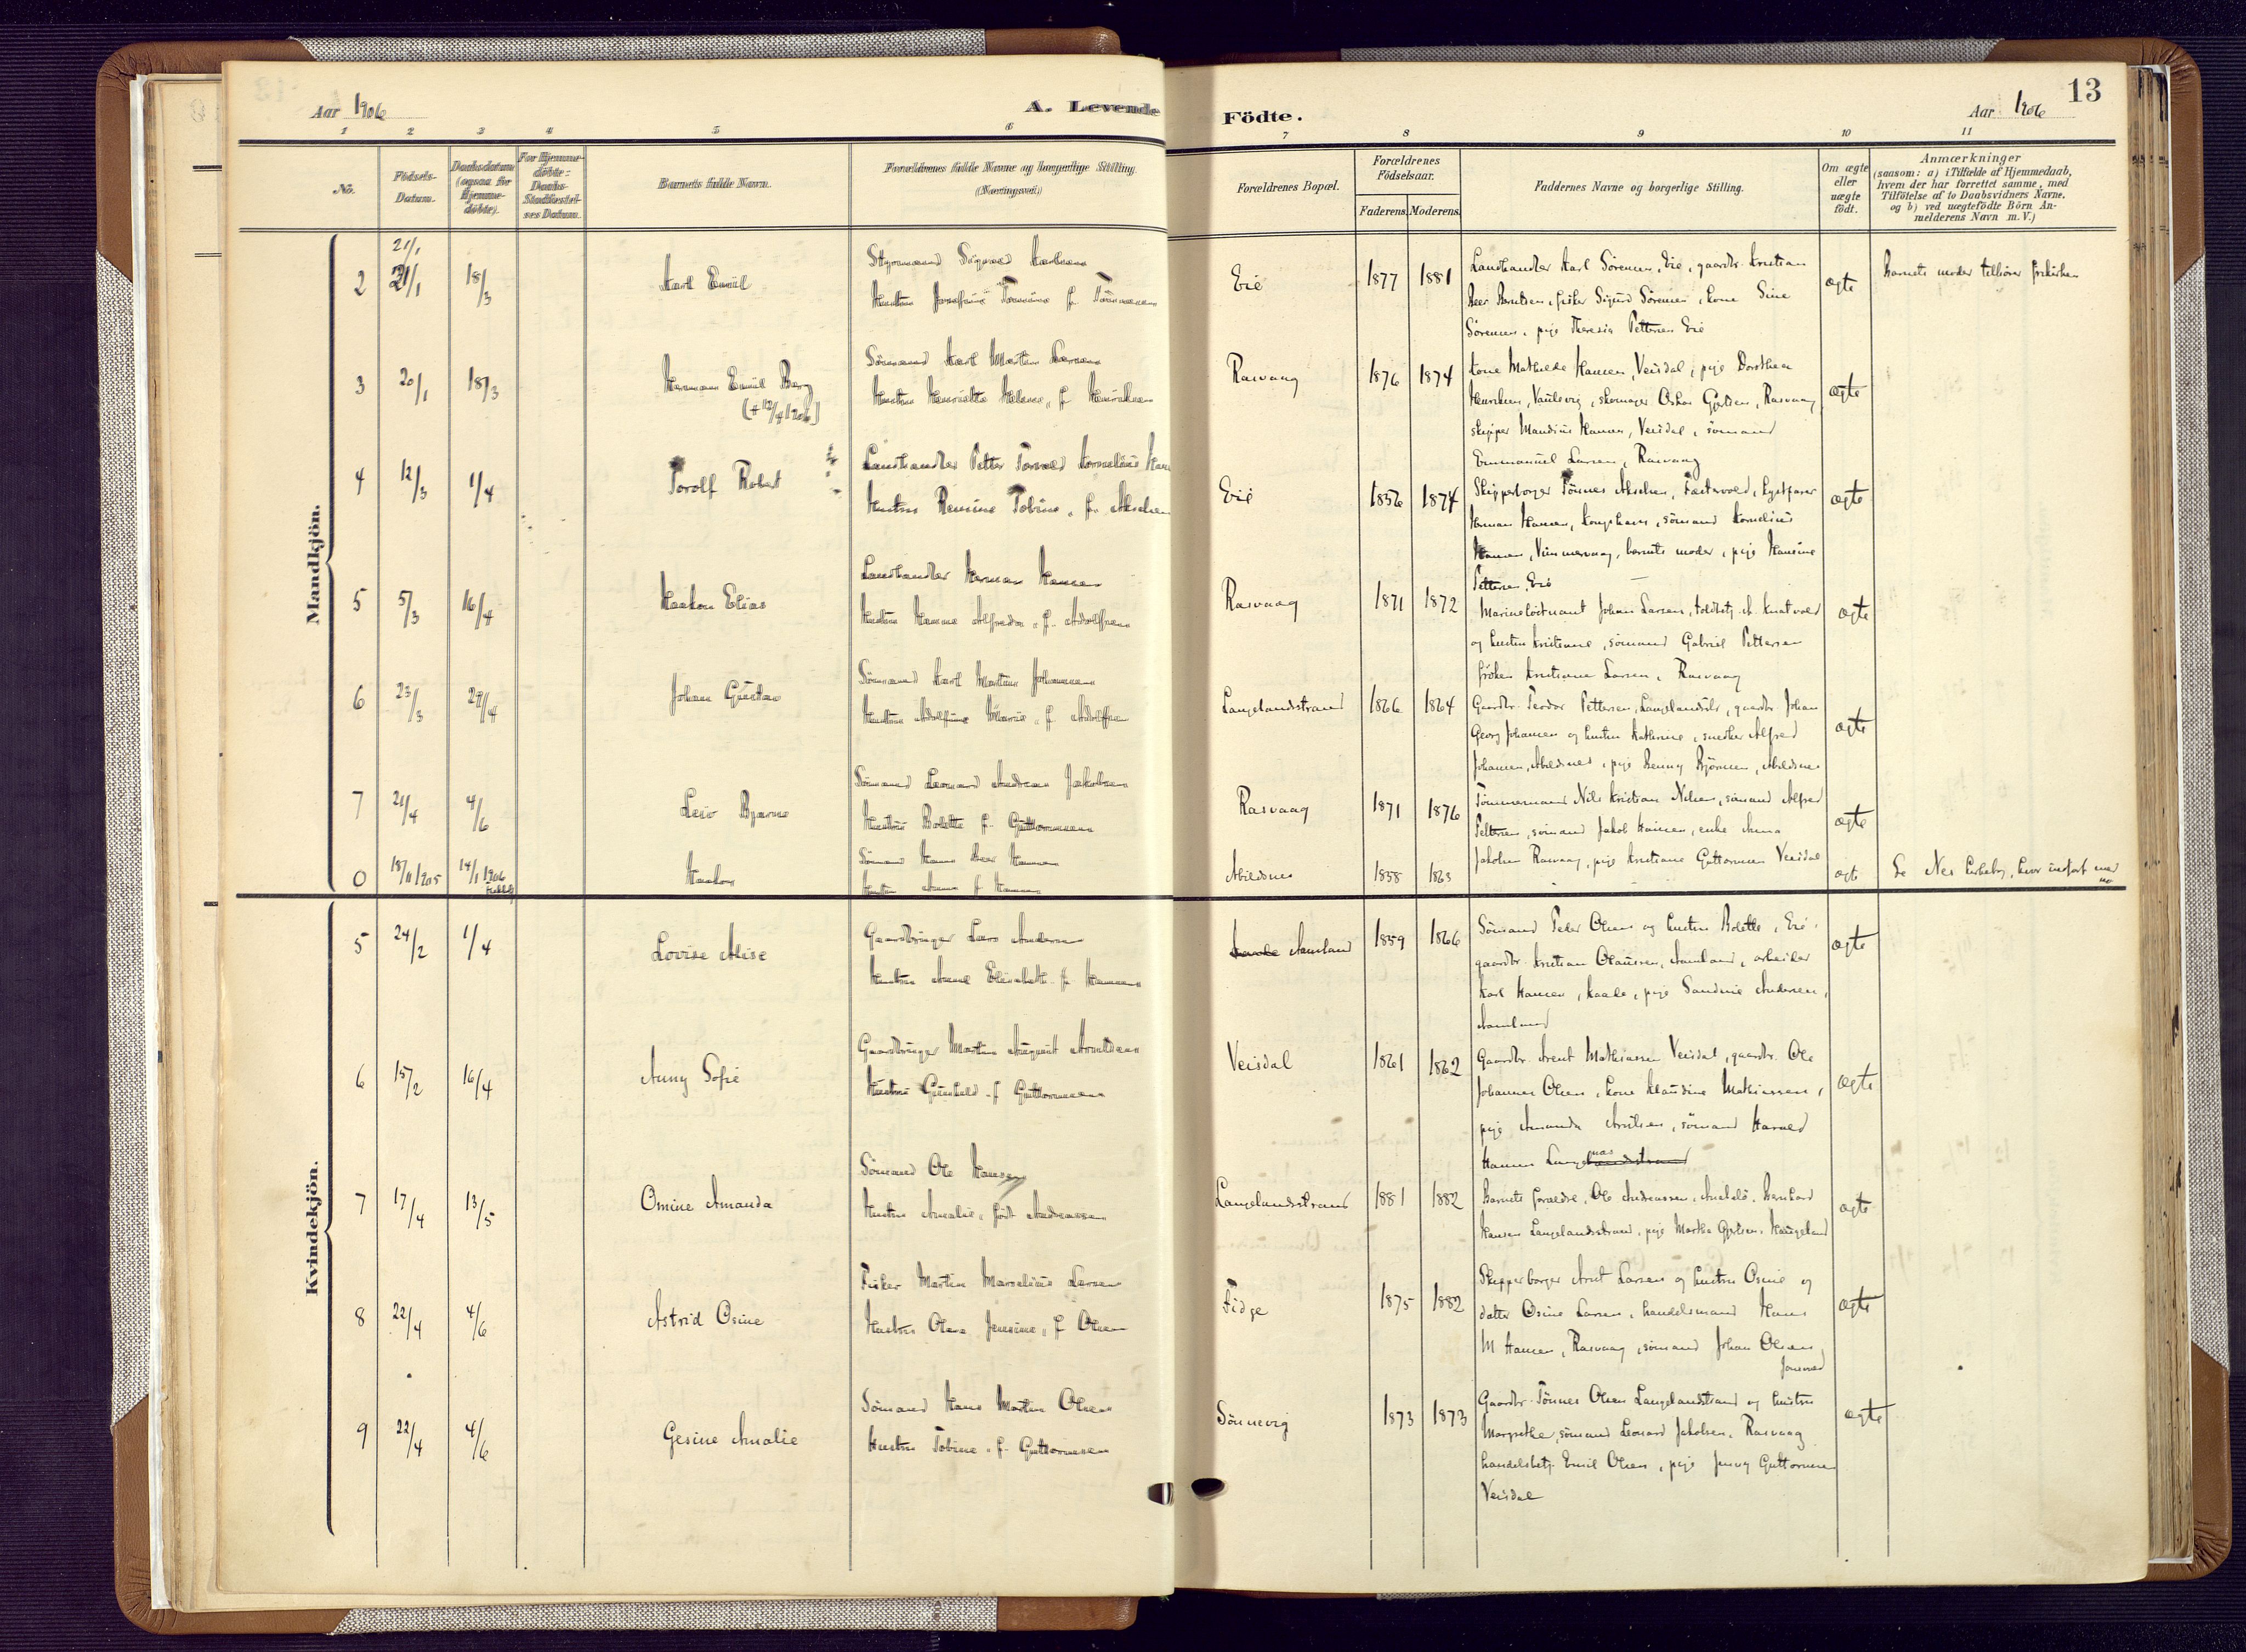 13
Aar 1906
A. Levende
Födte.
Aar 1906
1 2 3 4 5 6 7 8 9 10 11
No.
Födsels-Datum.
Daabsdatum (ogsaa for Hjemme-döbte).
For Hjemme-döbte: Daabs-Stadfæstel-ses Datum.
Barnets fulde Navn.
Forældrenes fulde Navne og borgerlige Stilling. (Næringsvei)
Forældrenes Bopæl.
Forældrenes Födselsaar.
Faderens. Moderens.
Faddernes Navne og borgerlige Stilling.
Om ægte eller uægte födt.
Anmærkninger
(saasom: a) i Tilfælde af Hjemmedaab,
hvem der har forrettet samme, med
Tilföielse af to Daabsvidners Navne,
og b) ved uægtefödte Börn An-
melderens Navn m. V.)
Mandkjön.
2 21/1 21/1 18/3 Karl Emil
Styrmand Sigvard
Hustru Josefine Tomine f. Tönnesen
Evie 1877 1881
Landhandler Karl Sörensen, Evie, gaardbr. Kristian
Beer Berntsen, fisker Sigurd Sörensen, kone Sine
Sörensen, pige Theresia Pettersen Evie
ægte
Barnets moder tilhörer frikirken
3 20/1 18/3 Herman Emil Berg
(+ 12/4 1906)
Sömand Karl Martin Larsen
Hustru Henriette Helene, f. Henriksen
Rasvaag 1876 1874
kone Mathilde Hansen, Veisdal, pige Dorothea
Henriksen, skomager Oskar Gjertsen, Rasvaag
skipper Maudius Hansen, Veisdal, sömand
Emmanuel Larsen, Rasvaag
ægte
4 12/3 1/4 Torolf Robert
Landhandler Petter Torvald Kornelius
Hustru Remine Tobine, f. Akselsen
Evie 1856 1874
Skipperborger Tönnes Akselsen, lystfarer
Herman Hansen, Kongshavn, sömand Kornelius
Hansen, barnets moder, pige Hansine
Pettersen, Evie
ægte
5 5/3 16/4 Haakon Elias
Landhandler Herman Hansen
Hustru Hanne Alfreda, f. Adolfsen
Rasvaag 1871 1872
Marinelöitnant Johan Larsen, toldbetj.
og hustru Kristianne, sömand Gabriel Pettersen
fröken Kristiane Larsen, Rasvaag
ægte
6 23/3 29/4 Johan Gustav
Sömand Karl Martin Johannesen
Hustru Adolfine Marie, f. Adolfsen
Langelandsstrand 1866 1864
Gaardbr. Teodor Pettersen, gaardbr. Johan
Georg Johansen og hustru Kathrine, snedker Alfred
Johansen, Abildsnes, pige Benny Björnsen, Abildsnes
ægte
7 21/4 4/6 Leiv Bjarne
Sömand Leonard Andreas Jakobsen
Hustru Bolette f. Guttormsen
Rasvaag 1871 1876
Tömmermand Nils Kristian Nilsen, sömand Alfred
Pettersen, sömand Jakob Hansen, enke Anna
Jakobsen Rasvaag, pige Kristiane Guttormsen Veisdal
ægte
0 18/11 1905 14/1 1906 Haakon
Sömand Hans Beer Hansen
Hustru Anne f. Hansen
Abildsnes 1858 1863
ægte
Se Nes kirkebog, hvor indført med no
Kvindekjön.
5 24/2 1/4 Lovise Alise
Gaardbruger Lars Andersen
Hustru Anne Elisabeth f. Hansen
Kaade Aamland 1859 1866
Sömand Peder Olsen og hustru Bolette, Evie,
gaardbr. Kristian Olaussen, Aamland, arbeider
Karl Hansen, Kaade, pige Sandrine Andersen,
Aamland
ægte
6 15/2 16/4 Anny Sofie
Gaardbruger Martin August Arntsen
Hustru Gunhild f. Guttormsen
Veisdal 1861 1862
Gaardbr. Arent Mathiassen Veisdal, gaardbr. Ole
Johannes Olsen, kone Klaudine Mathiassen,
pige Amanda sömand Harald
Hansen
ægte
7 17/4 13/5 Omine Amanda
Sömand Ole Hansen
Hustru Amalie, född Andreassen
Langelandsstrand 1881 1882
Barnets forældre, Ole Andreassen, Andabö, Bernhard
Hansen Langelandsstrand, pige Martha Gjertsen, Haugeland
ægte
8 22/4 4/6 Astrid Osine
Fisker Martin Marselius Larsen
Hustru Olava Jensine, f. Olsen
Fidge 1875 1882
Skipperborger Arnt Larsen og hustru Osine og
datter Osine Larsen, handelsmand Hans
M Hansen, Rasvaag, sömand Johan Olsen
ægte
9 22/4 4/6 Gesine Amalie
Sömand Hans Martin Olsen
Hustru Tobine f. Guttormsen
Sönnevig 1873 1873
Gaardbr. Tönnes Olsen Langelandstrand og hustru
Margrethe, sömand Leonard Jakobsen, Rasvaag
handelsbetj. Emil Olsen, pige Jenny Guttormsen
Veisdal
ægte